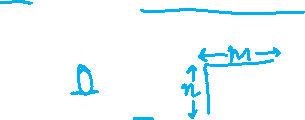 D
m
n